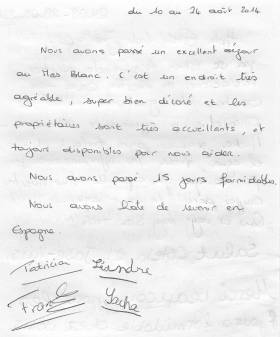 du 10 au 24 août 2014
Nous avons passé un excellent séjour
au Mas Blanc. C'est un endroit très
agréable, super bien décoré et les
propriétaires sont très accueillants, et
toujours disponibles pour nous aider.
Nous avons passé 15 jours formidables.
Nous avons hâte de revenir en
Espagne.
Patricia Léandre
Franck Sacha